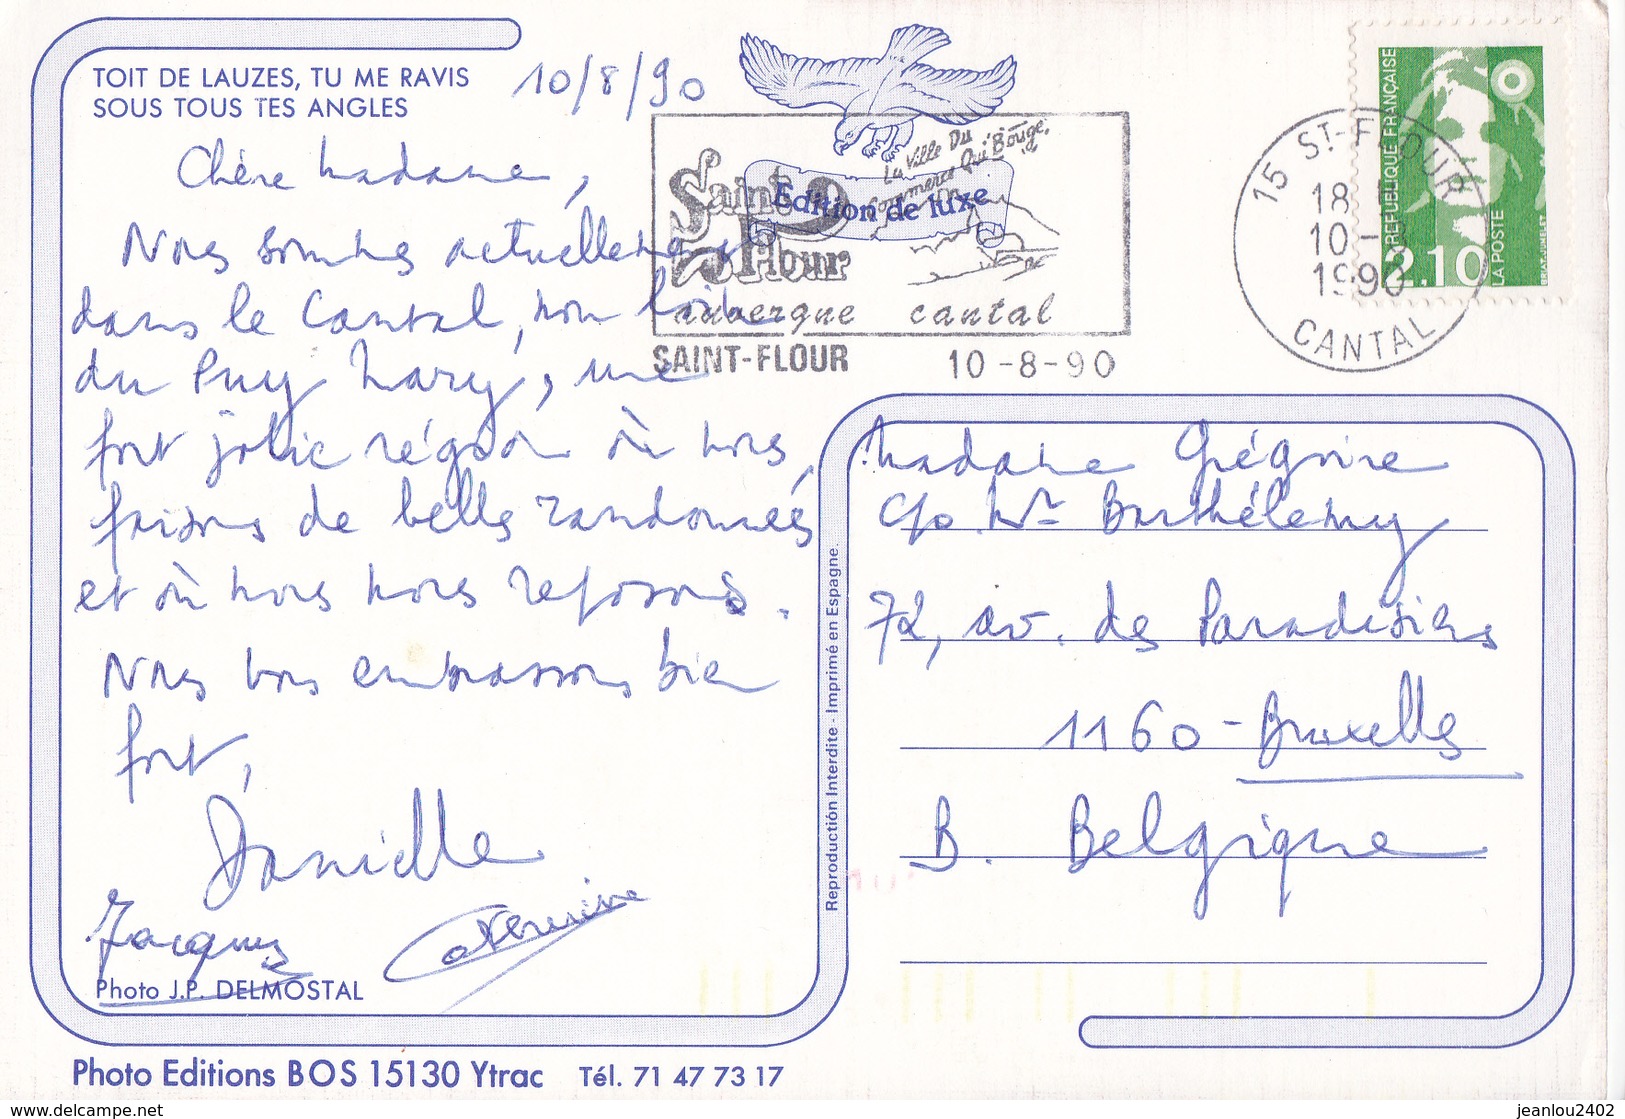 TOIT DE LAUZES, TU ME RAVIS
SOUS TOUS TES ANGLES
10/8/90
Chère Madame,
Nous sommes actuellement
dans le Cantal, non loin
du Puy Mary, une
fort jolie région où nous
faisons de belles randonnées
et où nous nous reposons.
Nous vous embrassons bien
fort,
Danielle
Jacques
Catherine
Photo J.P. DELMOSTAL
Photo Editions BOS 15130 Ytrac Tél. 71 47 73 17
Edition de luxe
La Ville Du
Commerce Qui Bouge.
Saint
Flour
auvergne cantal
SAINT-FLOUR 10-8-90
15 ST-FLOUR
18
10-8
1990
CANTAL
REPUBLIQUE FRANÇAISE
2.10
LA POSTE
BRIAT-JUMELET
Reproduction Interdite - Imprimé en Espagne.
Madame Grégoire
c/o Mr Barthélemy
72, av. des Paradisiers
1160 - Bruxelles
B. Belgique
jeanlou2402
www.delcampe.net